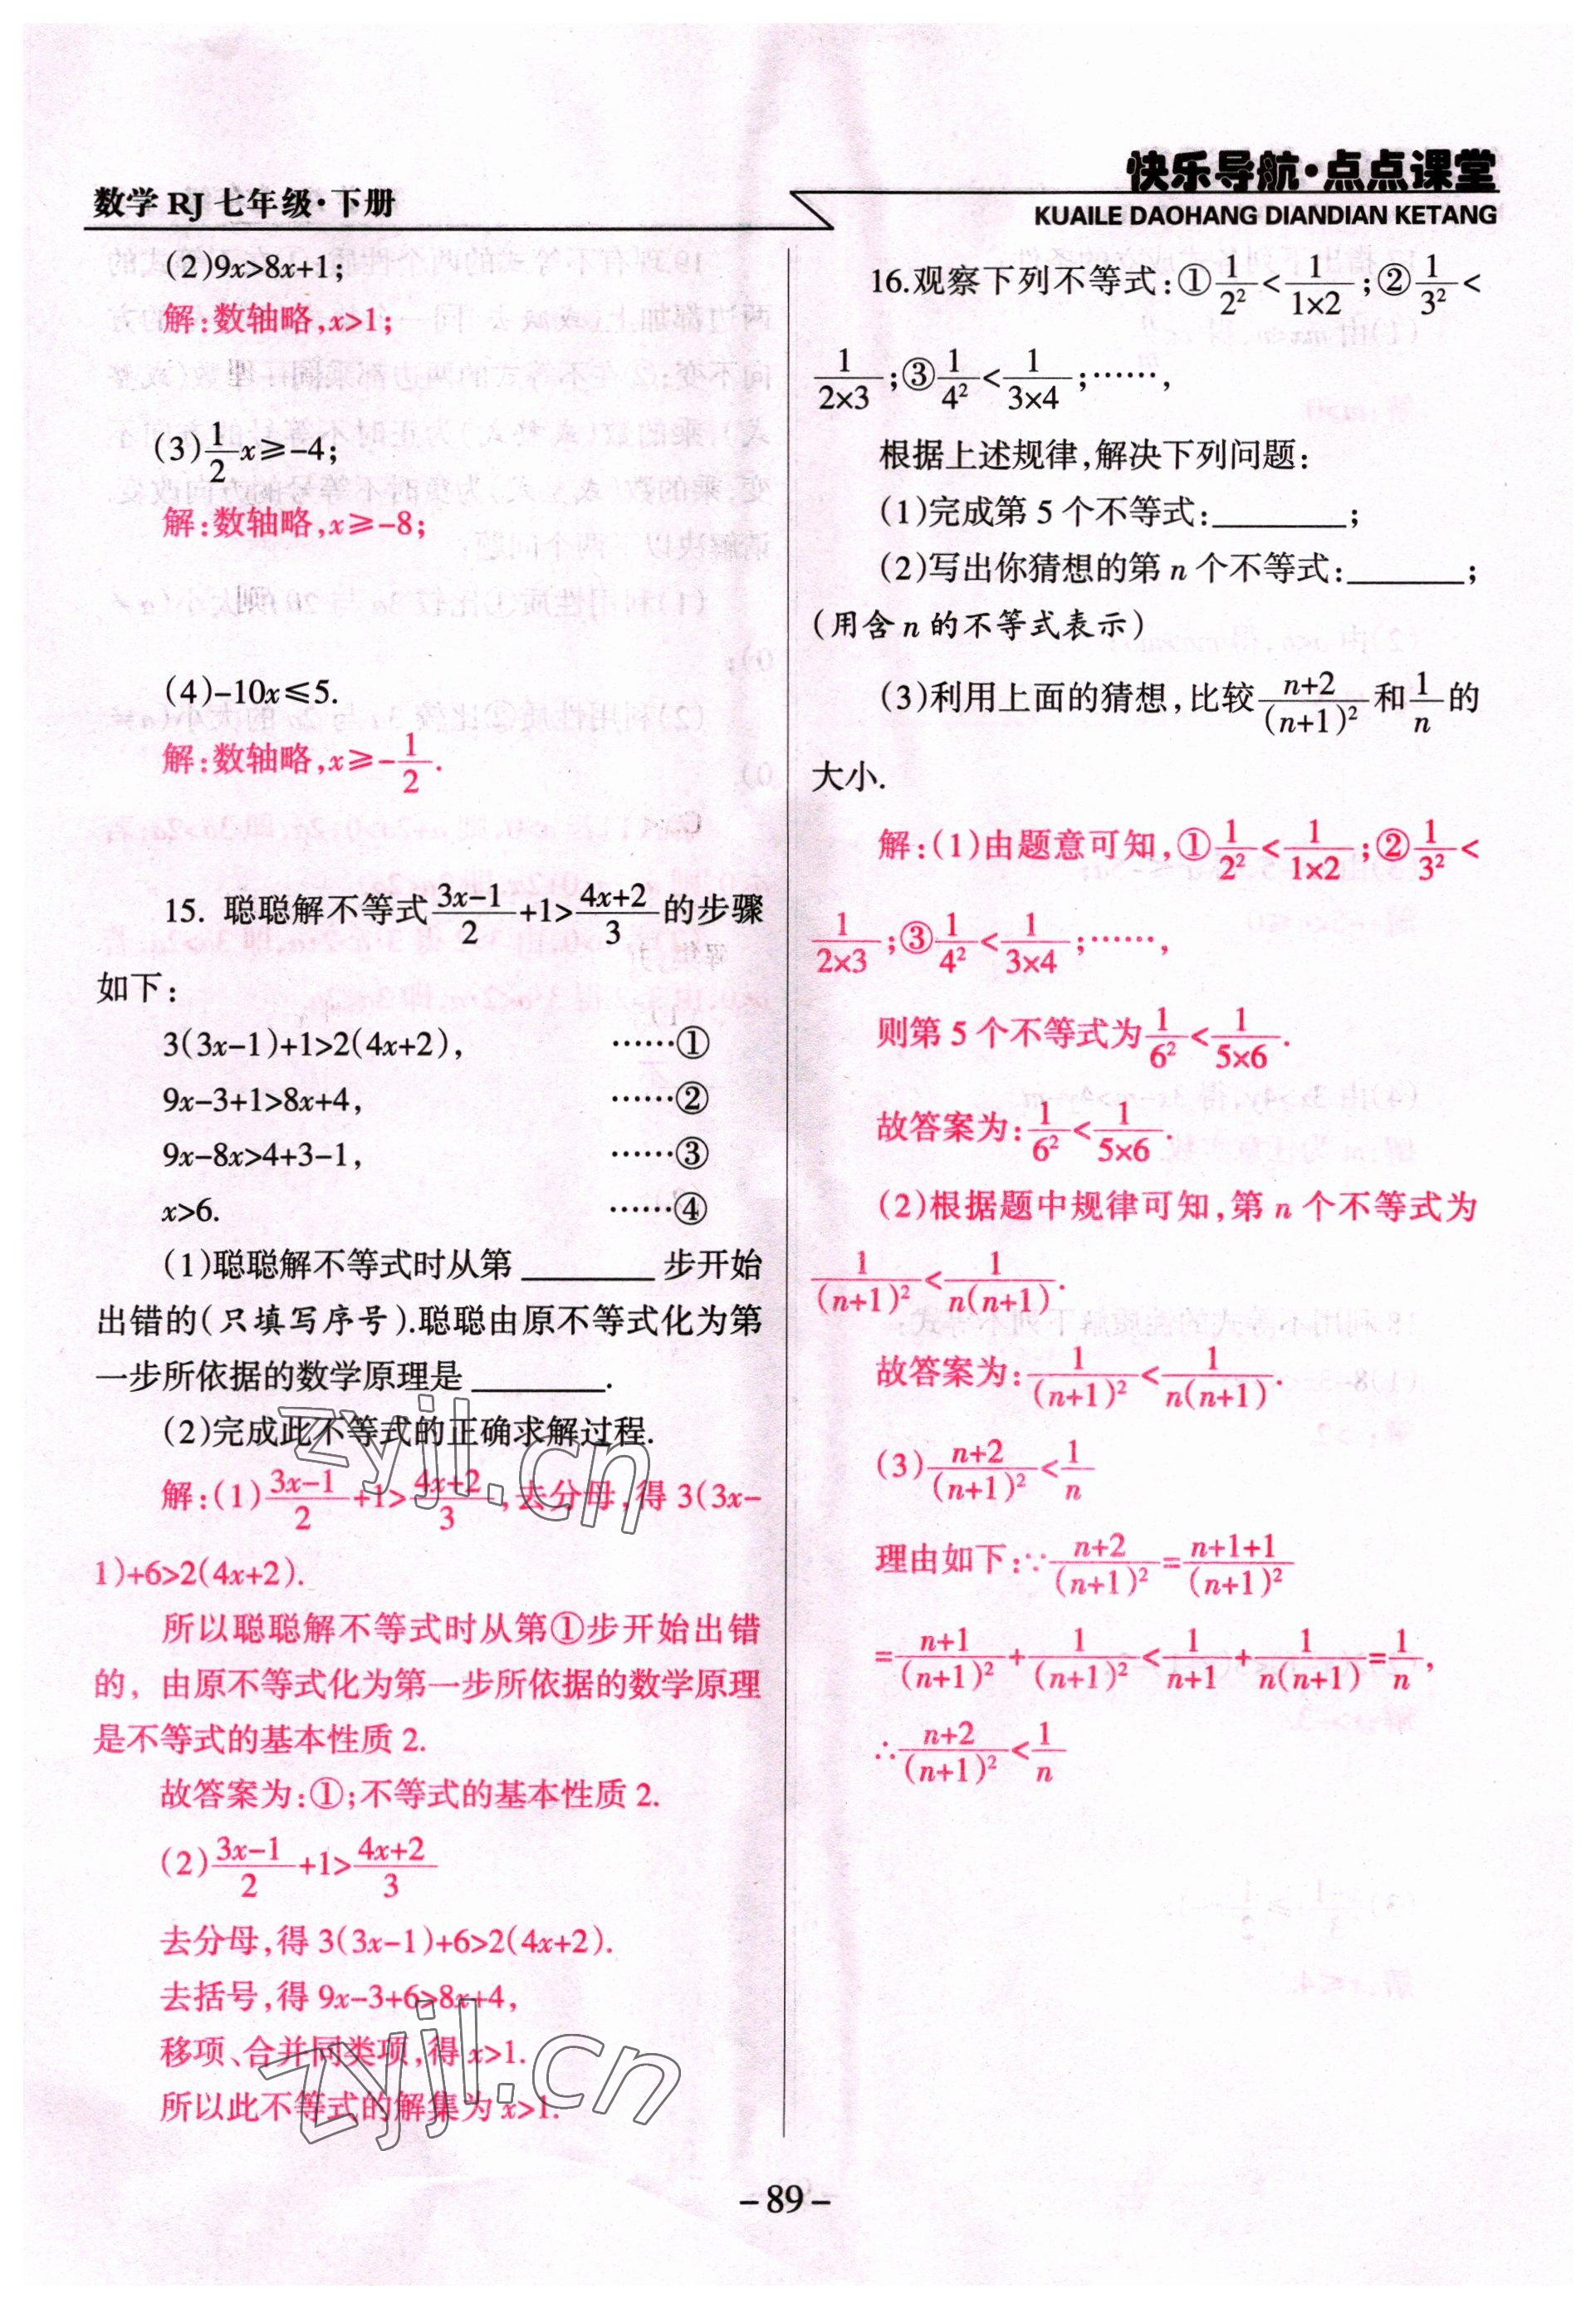 数学 RJ 七年级·下册
快乐导航·点点课堂
KUAILE DAOHANG DIANDIAN KETANG
(2)9x>8x+1;
解:数轴略,x>1;
(3)1/2x≥-4;
解:数轴略,x≥-8;
(4)-10x≤5.
解:数轴略,x≥-1/2.
15. 聪聪解不等式(3x-1)/2+1>(4x+2)/3的步骤
如下:
3(3x-1)+1>2(4x+2), ……①
9x-3+1>8x+4, ……②
9x-8x>4+3-1, ……③
x>6. ……④
(1)聪聪解不等式时从第________步开始
出错的(只填写序号).聪聪由原不等式化为第
一步所依据的数学原理是________.
(2)完成此不等式的正确求解过程.
解:(1)(3x-1)/2+1>(4x+2)/3,去分母,得 3(3x-
1)+6>2(4x+2).
所以聪聪解不等式时从第①步开始出错
的，由原不等式化为第一步所依据的数学原理
是不等式的基本性质 2.
故答案为:①;不等式的基本性质 2.
(2)(3x-1)/2+1>(4x+2)/3
去分母,得 3(3x-1)+6>2(4x+2).
去括号,得 9x-3+6>8x+4,
移项、合并同类项,得 x>1.
所以此不等式的解集为 x>1.
16.观察下列不等式:①1/2²<1/(1×2);②1/3²<
1/(2×3);③1/4²<1/(3×4);……,
根据上述规律,解决下列问题:
(1)完成第 5 个不等式:________;
(2)写出你猜想的第 n 个不等式:_______;
(用含 n 的不等式表示)
(3)利用上面的猜想,比较(n+2)/(n+1)²和1/n的
大小.
解:(1)由题意可知,①1/2²<1/(1×2);②1/3²<
1/(2×3);③1/4²<1/(3×4);……,
则第 5 个不等式为1/6²<1/(5×6).
故答案为:1/6²<1/(5×6).
(2)根据题中规律可知,第 n 个不等式为
1/(n+1)²<1/(n(n+1)).
故答案为:1/(n+1)²<1/(n(n+1)).
(3)(n+2)/(n+1)²<1/n
理由如下:∵(n+2)/(n+1)²=(n+1+1)/(n+1)²
=(n+1)/(n+1)²+1/(n+1)²<1/(n+1)+1/(n(n+1))=1/n,
∴(n+2)/(n+1)²<1/n
zyjl.cn
zyjl.cn
-89-